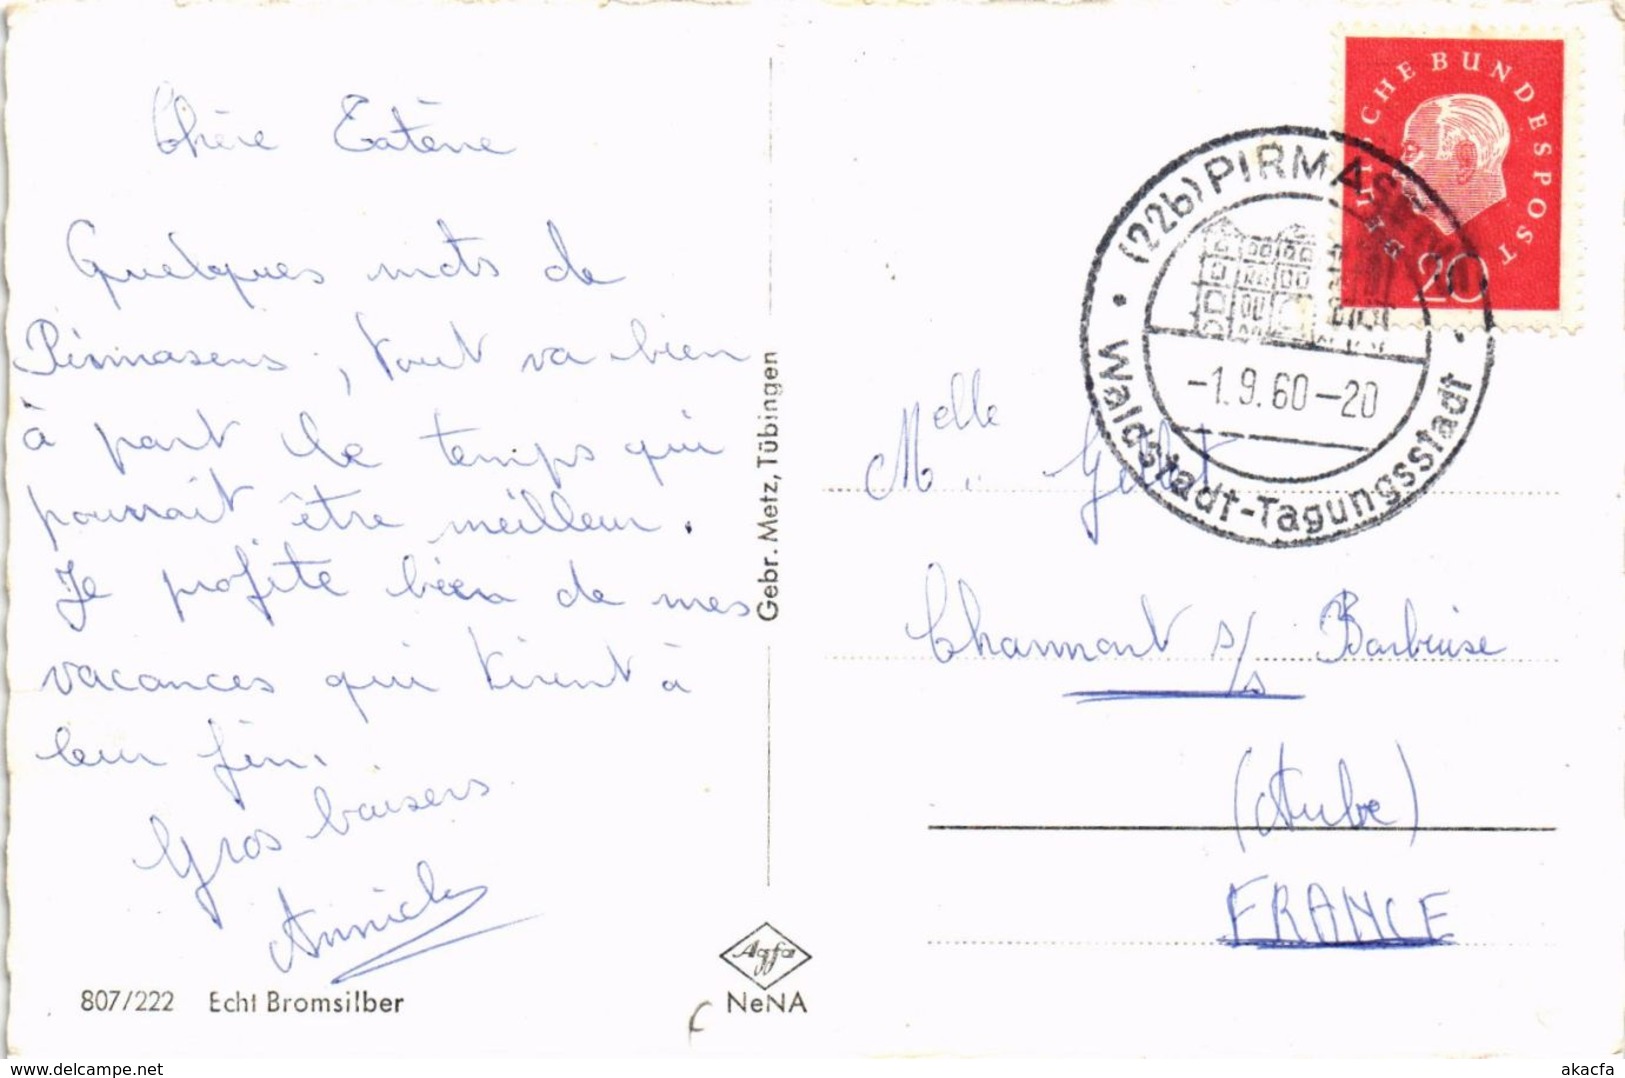 Chère Tatène
Quelques mots de
Pirmasens, tout va bien
à part le temps qui
pourrait être meilleur.
Je profite bien de mes
vacances qui tirent à
leur fin.
Gros baisers
Annick
807/222 Echt Bromsilber
Gebr. Metz, Tübingen
Agfa
NeNA
DEUTSCHE BUNDESPOST
20
(22b) PIRMASENS
-1.9.60-20
Waldstadt-Tagungsstadt
Melle
Chaumont s/s Barbuise
(Aube)
FRANCE
www.delcampe.net
akacfa